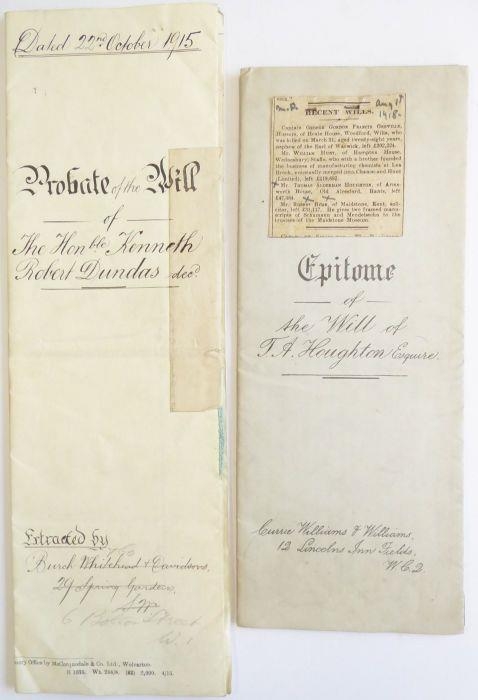 Dated 22nd October 1915
Probate of the Will
of
The Honble Kenneth
Robert Dundas decd.
Extracted by
Burch Whitehead & Davidsons,
29 Spring Gardens,
S.W.
6 Bolton Street
W.1
Office by McCorquodale & Co. Ltd., Wolverton.
Aug 1st
1918.
RECENT WILLS.
Captain George Gordon Francis Greville,
Hussars, of Heale House, Woodford, Wilts, who
was killed on March 31, aged twenty-eight years,
nephew of the Earl of Warwick, left £207,224.
Mr. William Hunt, of Hampton House,
Wednesbury, Staffs, who with a brother founded
the business of manufacturing chemists at Lea
Brook, eventually merged into Chance and Hunt
(Limited), left £218,692.
Mr. Thomas Alderson Houghton, of
House, Old Alresford, Hants, left
£47,484.
Mr. Hoar, of Maidstone, Kent,
left £31,117. He gives two framed
scripts of Schumann and Mendelssohn to the
trustees of the Maidstone Museum.
Epitome
of
the Will of
T. A. Houghton Esquire.
Currie Williams & Williams,
12 Lincolns Inn Fields,
W.C.2.